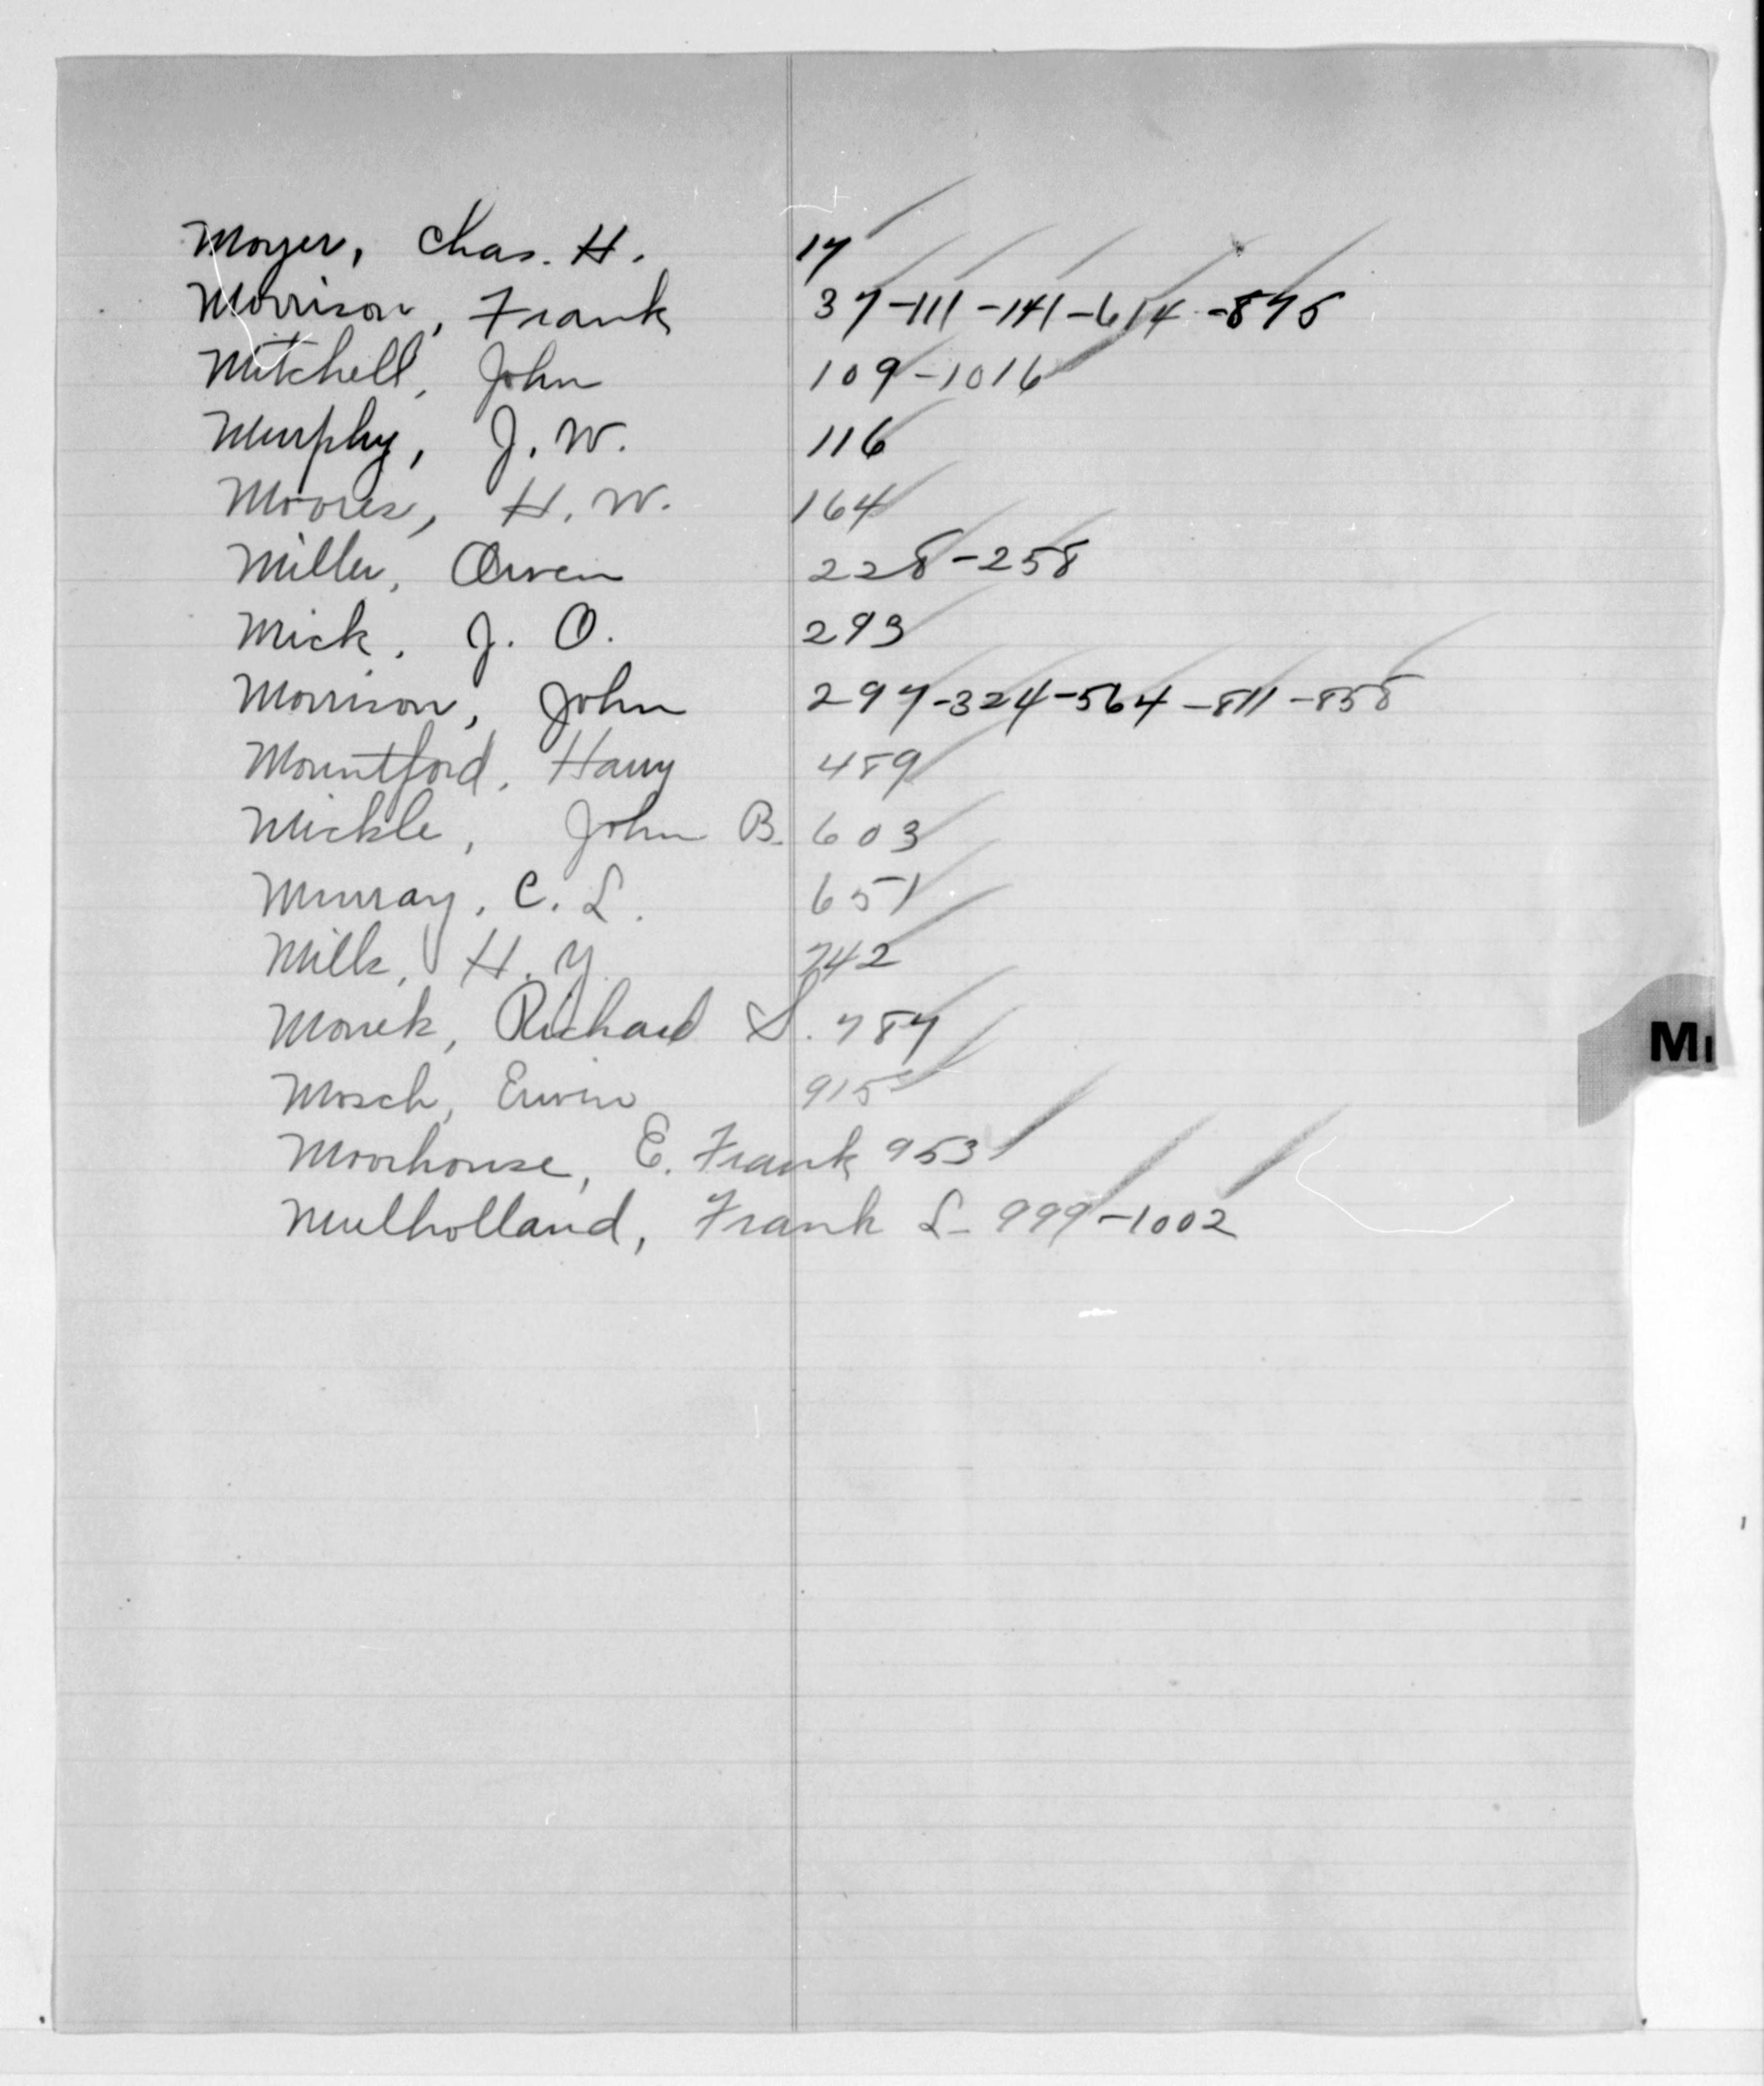 Moyer, Chas. H. 17
Morrison, Frank 37-111-141-614-875
Mitchell, John 109-1016
Murphy, J. W. 116
Moores, H. W. 164
Miller, Owen 228-258
Mick, J. O. 293
Morrison, John 297-324-564-811-858
Mountford, Harry 489
Mickle, John B. 603
Murray, C. L. 651
Mills, H. Y. 742
Monek, Richard S. 787
Mosch, Erwin 915
Moorhouse, E. Frank 953
Mulholland, Frank L. 999-1002